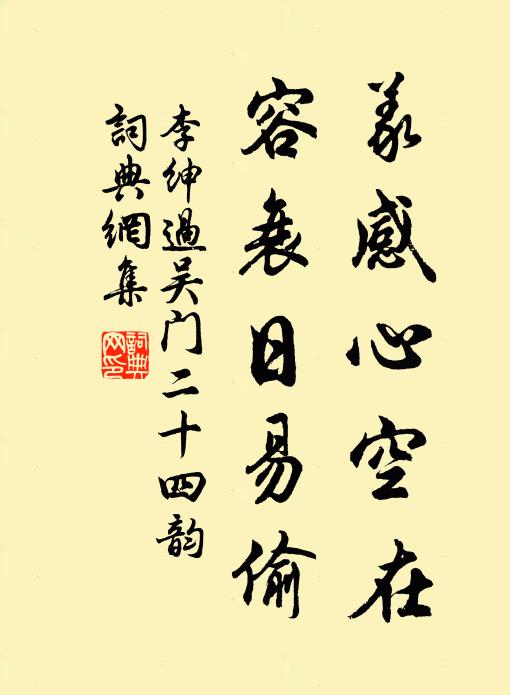 義感心空在
容衰日易偷
李紳過吴门二十四韵
詞典網集
詞典
网印